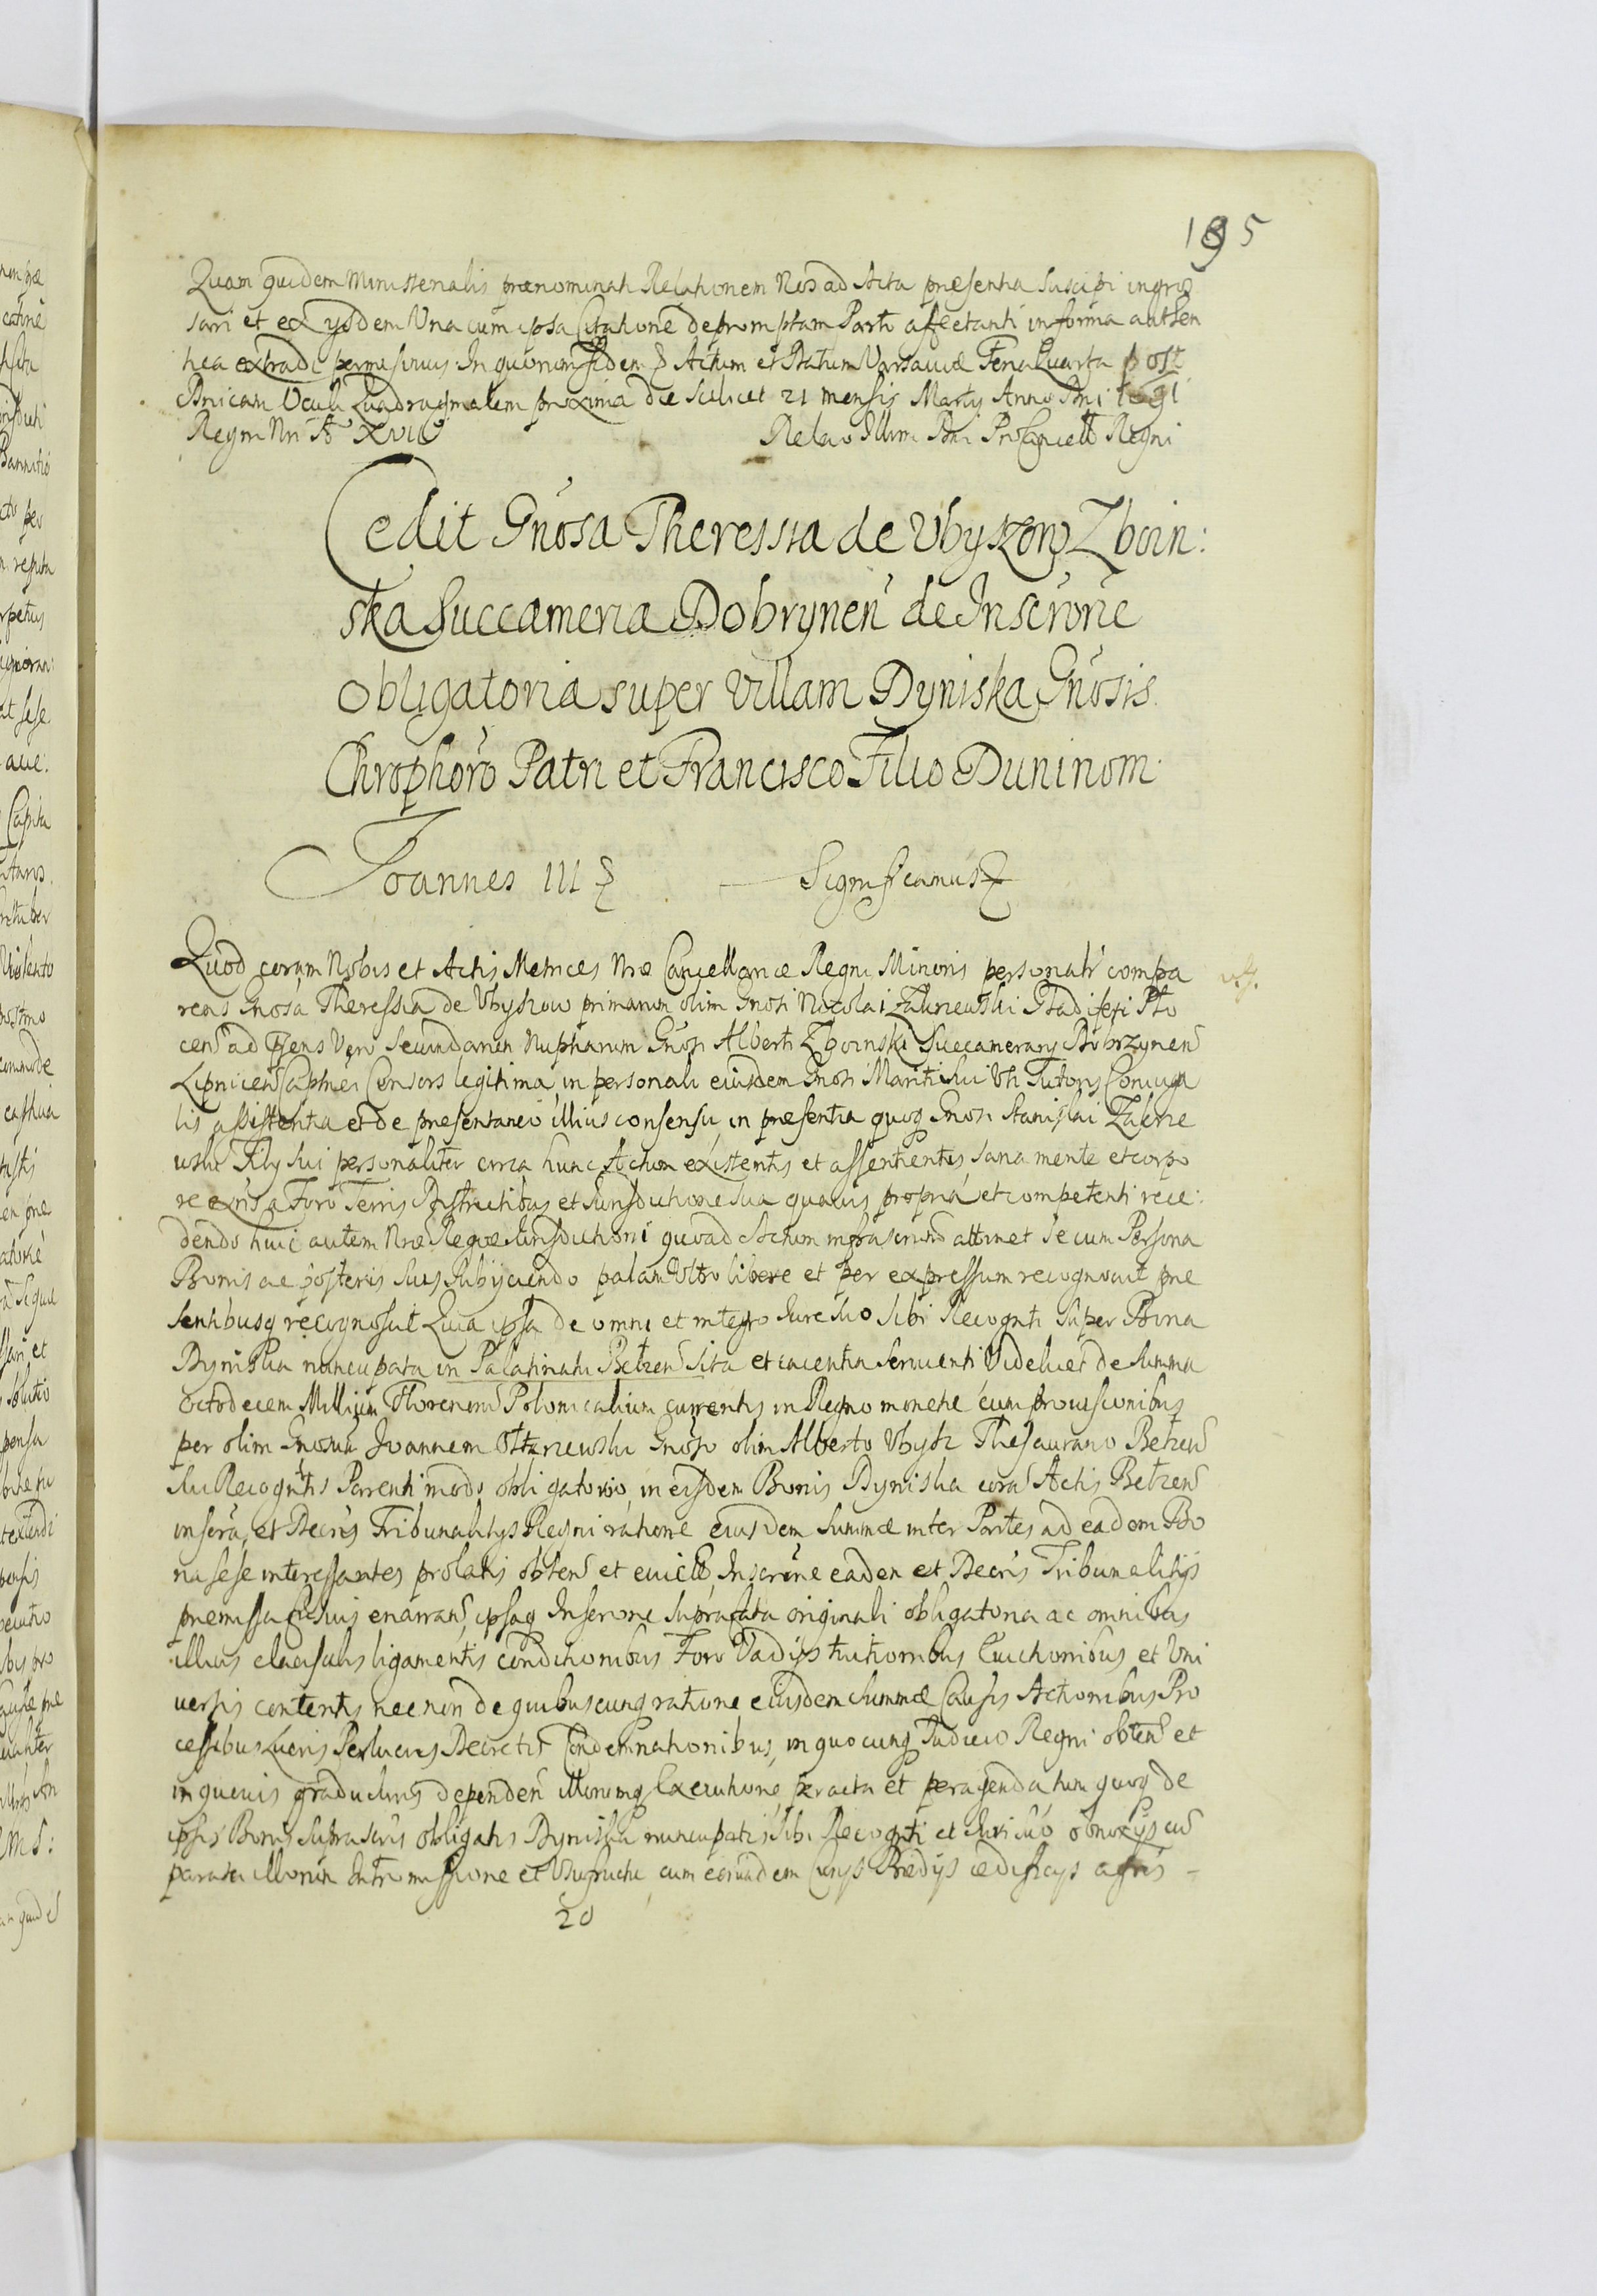 195
Quam quidem Ministerialis praenominati Relationem Nos ad Acta praesentia Suscipi ingros
sari et ex ijsdem Una cum ipsa Citatione depromptam Parti affectanti in forma authen
tica extradi permisimus. In quorum fidem Actum et Datum Varsaviae Feria Quarta post
Dnicam Oculi Quadragesimalem proxima die scilicet 21 mensis Martij Anno Dni 1691
Regni Nri Ao XVII Relao Illrm Dni ProCancell Regni
Cedit Gnosa Theressia de Vbyszow Zboin:
ska Succameria Dobrynen de Inscrone
obligatoria super Villam Dyniska Gnosis
Chrophoro Patri et Francisco Filio Duninom
Joannes III Significamus
Quod coram Nobis et Actis Metrices Nrae Cancellariae Regni Minoris personalr compa
rens Gnosa Theressia de Vbyszow primarum olim Gnosi Nicolai Zakrzewski Gladiferi Plo
cen ad psens Vero Secundarum Nuptiarum Gnosi Alberti Zboinski Succamerarij Dobrzynen
Lipnicen Capnei Consors legitima, in personali eiusdem Gnosi Mariti Sui Vti Tutoris Coniuga
lis assistentia et de praesentaneo illius consensu, in praesentia quoq Gnosi Stanislai Zakrze
wski Filij sui personaliter circa hunc Actum existentis et assentientis, sana mente et corpo
re exns a Foro Terris Districtibus et Jurisdictione sua quavis propria et competenti rece:
dendo huic autem Nrae Regiae Jurisdictioni quoad Actum infrascrum attinet se cum Persona
Bonis ac posteris suis Subijciendo palam Vltro libere et per expressum recognovit prae
sentibusq recognoscit Quia ipsa de omni et integro Jure suo sibi Recognti super Bona
Dyniska nuncupata in Palatinatu Belzen Sita et iacentia servienti Videlicet de summa
octodecem Millium Florenorum Polonicalium currentis in Regno monetae cum provisionibus
per olim Gnosum Joannem Gnoso olim Alberto Vbysz Thesaurario Belzen
sui Recogntis Parenti modo obligatorio, in eisdem Bonis Dyniska cora Actis Belzen
inscra, et Decris Tribunalitijs Regni ratione eiusdem summae inter Partes ad eadem Bo
na sese interessantes prolatis obten et evicta, Inscrone eadem et Decris Tribunalitijs
praemissa enarran, ipsaq Inscrone supradicta originali obligatoria ac omnibus
illius clausulis ligamentis conditionibus Foro Vadijs tuitionibus Evictionibus et Vni
versis contentis nec non de quibuscunq ratione eiusdem summae Causis Actionibus Pro
cessibus Lucris Perlucris Decretis Condemnationibus, in quocunq Judicio Regni obten et
in quovis gradu Juris dependen illorumq Executione peracta et peragenda tum quoq de
ipsis Bonis suprascris obligatis Dyniska nuncupatis sibi Recognti et Juri suo obnoxijs cu
parata illorum Intromissione et Vsufructu cum eorundem Curijs Praedijs aedificijs agris -
20